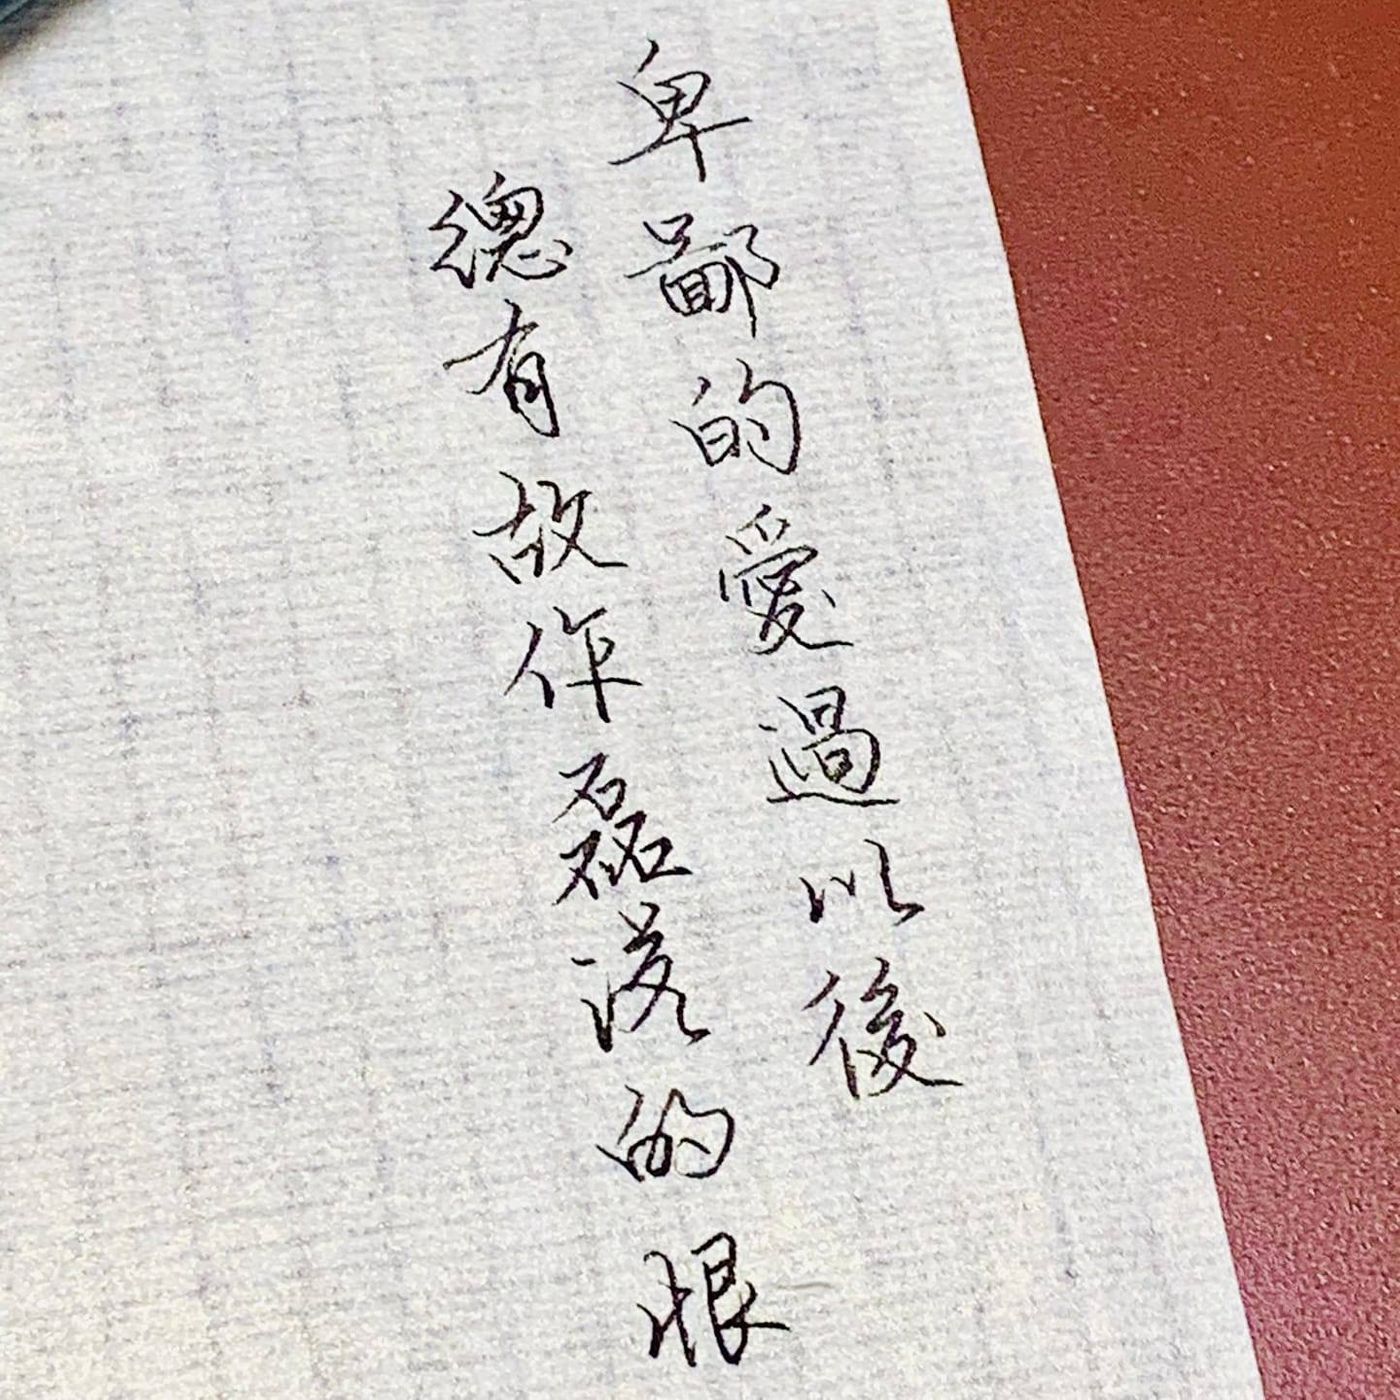 卑鄙的愛過以後
總有故作磊落的恨